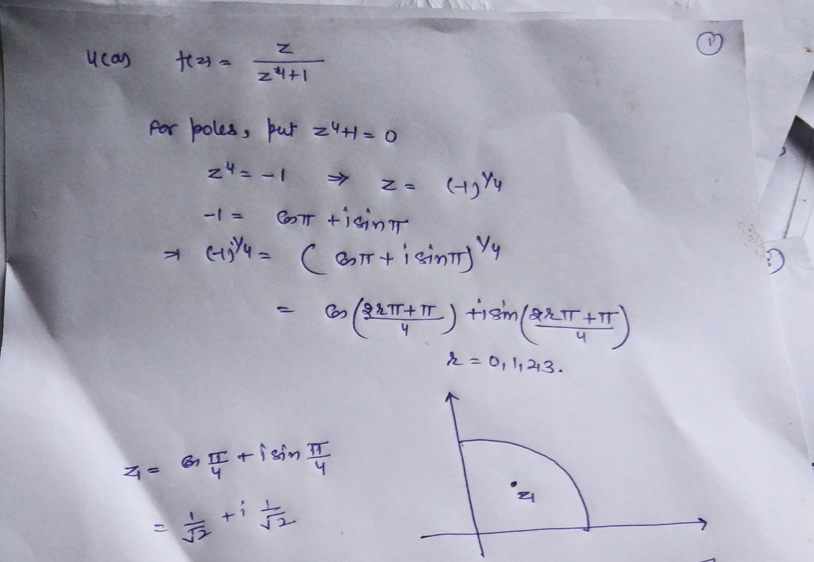 ①
4(a) f(z) = z / z⁴+1
For poles, put z⁴+1 = 0
z⁴ = -1 ⇒ z = (-1)^1/4
-1 = cosπ + i sinπ
⇒ (-1)^1/4 = (cosπ + i sinπ)^1/4
= cos(2rπ+π / 4) + i sin(2rπ+π / 4)
r = 0,1,2,3.
z₁ = cos π/4 + i sin π/4
= 1/√2 + i 1/√2
z₁